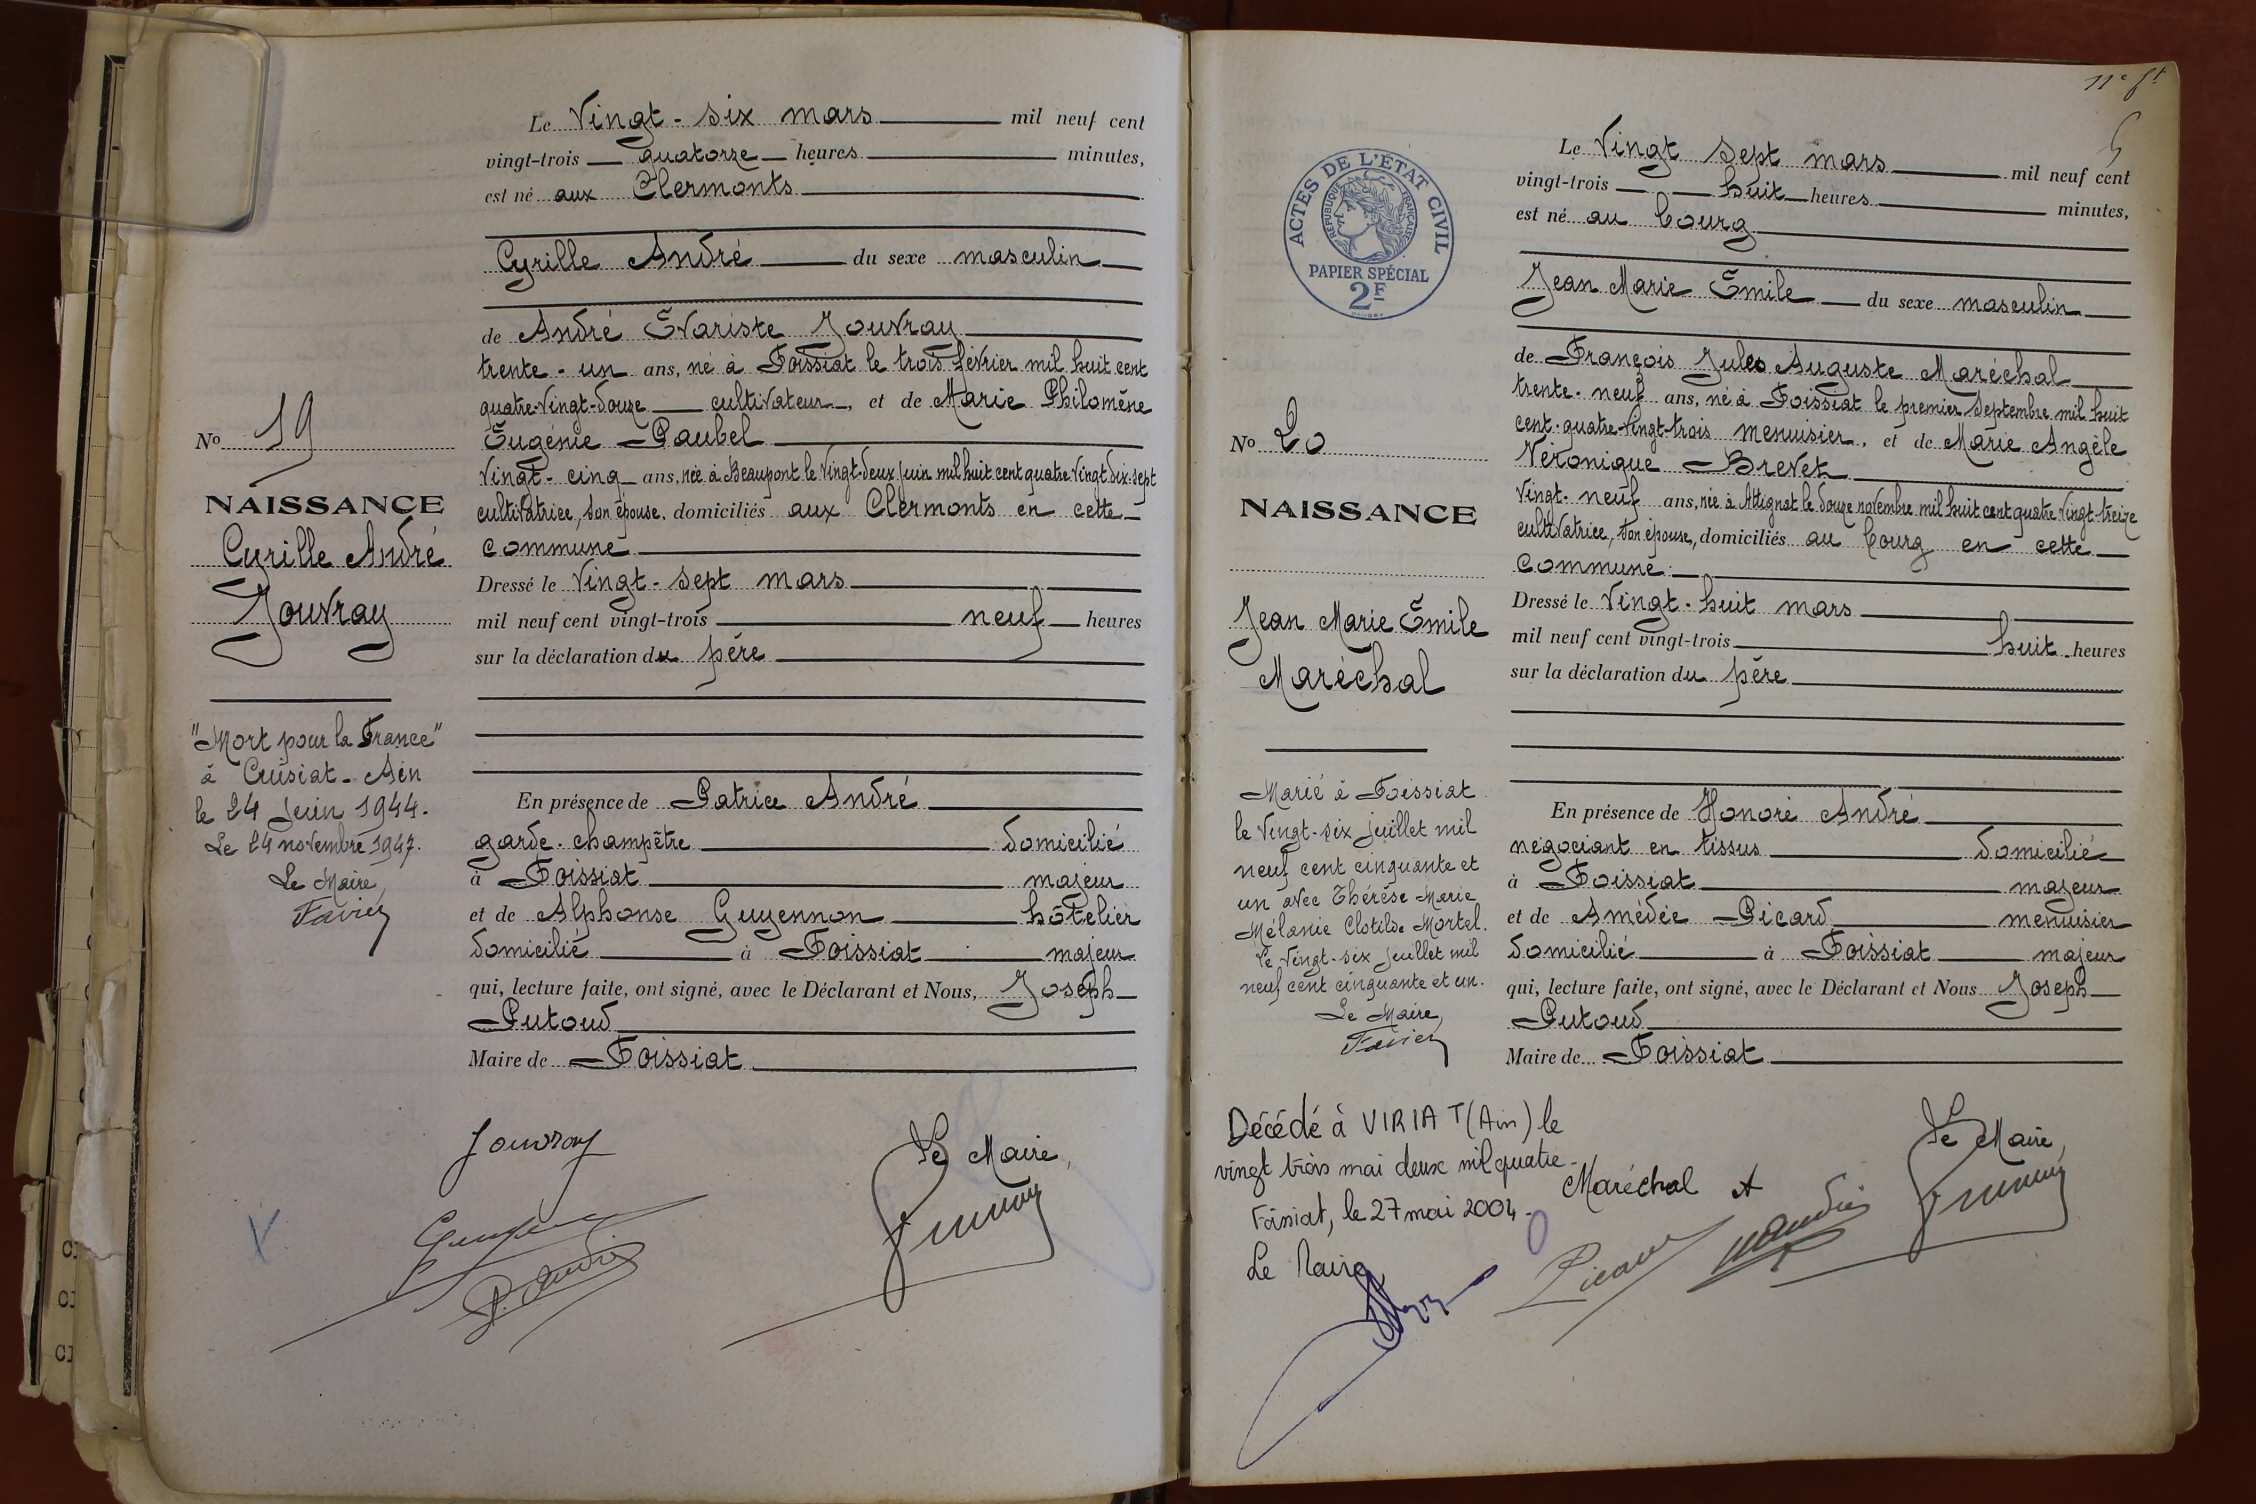 Le Vingt-six mars mil neuf cent
vingt-trois quatorze heures minutes,
est né aux Clermonts
Cyrille André du sexe masculin
de André Évariste Jouvray
trente-un ans, né à Foissiat le trois février mil huit cent
quatre-vingt-douze cultivateur, et de Marie Philomène
Eugénie Paubel
Vingt-cinq ans, née à Beaupont le Vingt-deux juin mil huit cent quatre Vingt dix-sept
cultivatrice, son épouse, domiciliés aux Clermonts en cette
commune
Dressé le Vingt-sept mars
mil neuf cent vingt-trois neuf heures
sur la déclaration du père
En présence de Patrice André
garde-champêtre domicilié
à Foissiat majeur
et de Alphonse Guyennon hôtelier
domicilié à Foissiat majeur
qui, lecture faite, ont signé, avec le Déclarant et Nous, Joseph
Putoud
Maire de Foissiat
Jouvray
Le Maire,
P. André
No 19
NAISSANCE
Cyrille André
Jouvray
"Mort pour la France"
à Cuisiat-Ain
le 24 Juin 1944.
Le 24 novembre 1947.
Le Maire,
Favier
11e ft
5
ACTES DE L'ETAT CIVIL
REPUBLIQUE FRANÇAISE
PAPIER SPÉCIAL
2F
Le Vingt sept mars mil neuf cent
vingt-trois huit heures minutes,
est né au bourg
Jean Marie Emile du sexe masculin
de François Jules Auguste Maréchal
trente-neuf ans, né à Foissiat le premier septembre mil huit
cent-quatre-vingt-trois menuisier, et de Marie Angèle
Véronique Brevet
Vingt-neuf ans, née à Attignat le douze novembre mil huit cent quatre Vingt-treize
cultivatrice, son épouse, domiciliés au bourg en cette
commune
Dressé le Vingt-huit mars
mil neuf cent vingt-trois huit heures
sur la déclaration du père
En présence de Honoré André
négociant en tissus domicilié
à Foissiat majeur
et de Amédée Picard menuisier
domicilié à Foissiat majeur
qui, lecture faite, ont signé, avec le Déclarant et Nous Joseph
Putoud
Maire de Foissiat
Le Maire,
Maréchal A
Picard
No 20
NAISSANCE
Jean Marie Emile
Maréchal
Marié à Foissiat
le Vingt-six juillet mil
neuf cent cinquante et
un avec Thérèse Marie
Mélanie Clotilde Mortel.
Le Vingt-six juillet mil
neuf cent cinquante et un.
Le Maire,
Favier
Décédé à VIRIAT (Ain) le
vingt trois mai deux mil quatre-
Foissiat, le 27 mai 2004-
Le Maire,